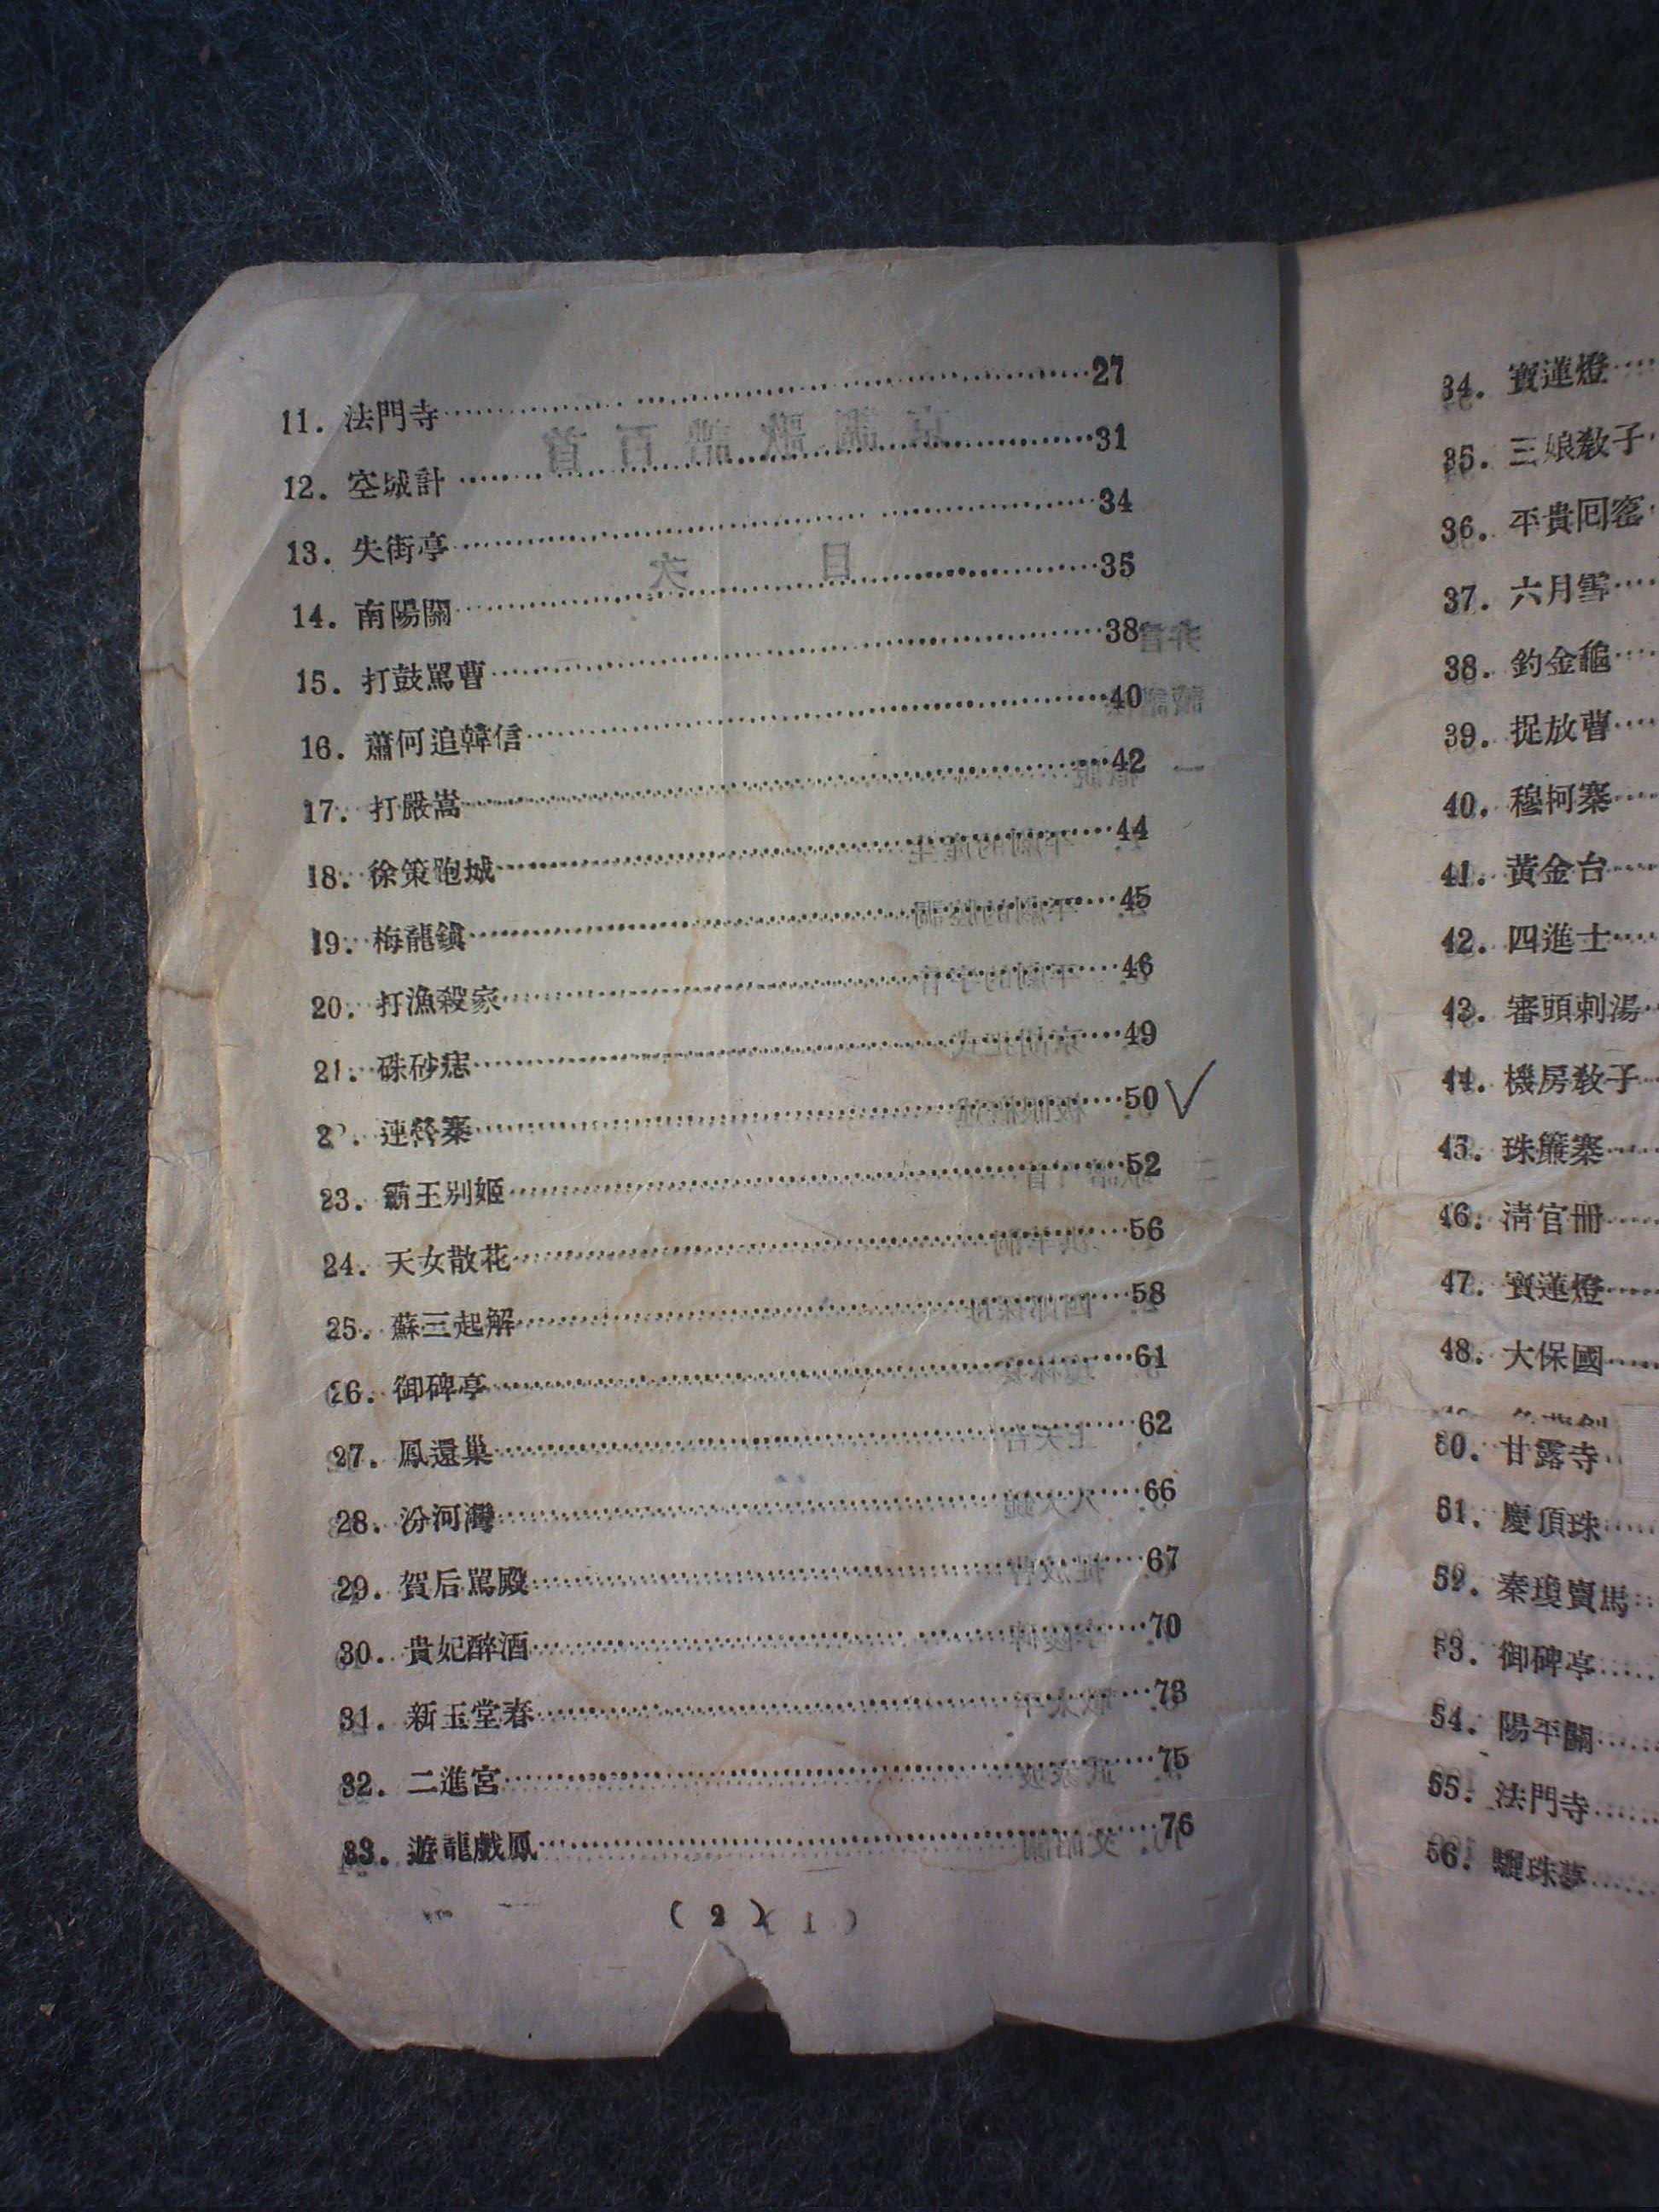 11. 法門寺……27
12. 空城計……31
13. 失街亭……34
14. 南陽關……35
15. 打鼓罵曹……38
16. 蕭何追韓信……40
17. 打嚴嵩……42
18. 徐策跑城……44
19. 梅龍鎭……45
20. 打漁殺家……46
21. 硃砂痣……49
22. 連營寨……50 ✓
23. 霸王別姬……52
24. 天女散花……56
25. 蘇三起解……58
26. 御碑亭……61
27. 鳳還巢……62
28. 汾河灣……66
29. 賀后罵殿……67
30. 貴妃醉酒……70
31. 新玉堂春……73
32. 二進宮……75
33. 遊龍戲鳳……76
( 2 )
34. 寶蓮燈……
35. 三娘教子…
36. 平貴回窰…
37. 六月雪……
38. 釣金龜……
39. 捉放曹……
40. 穆柯寨……
41. 黃金台……
42. 四進士……
43. 審頭刺湯…
44. 機房教子…
45. 珠簾寨……
46. 清官冊……
47. 寶蓮燈……
48. 大保國……
50. 甘露寺…
51. 慶頂珠……
52. 秦瓊賣馬…
53. 御碑亭……
54. 陽平關……
55. 法門寺……
56. 驪珠夢……